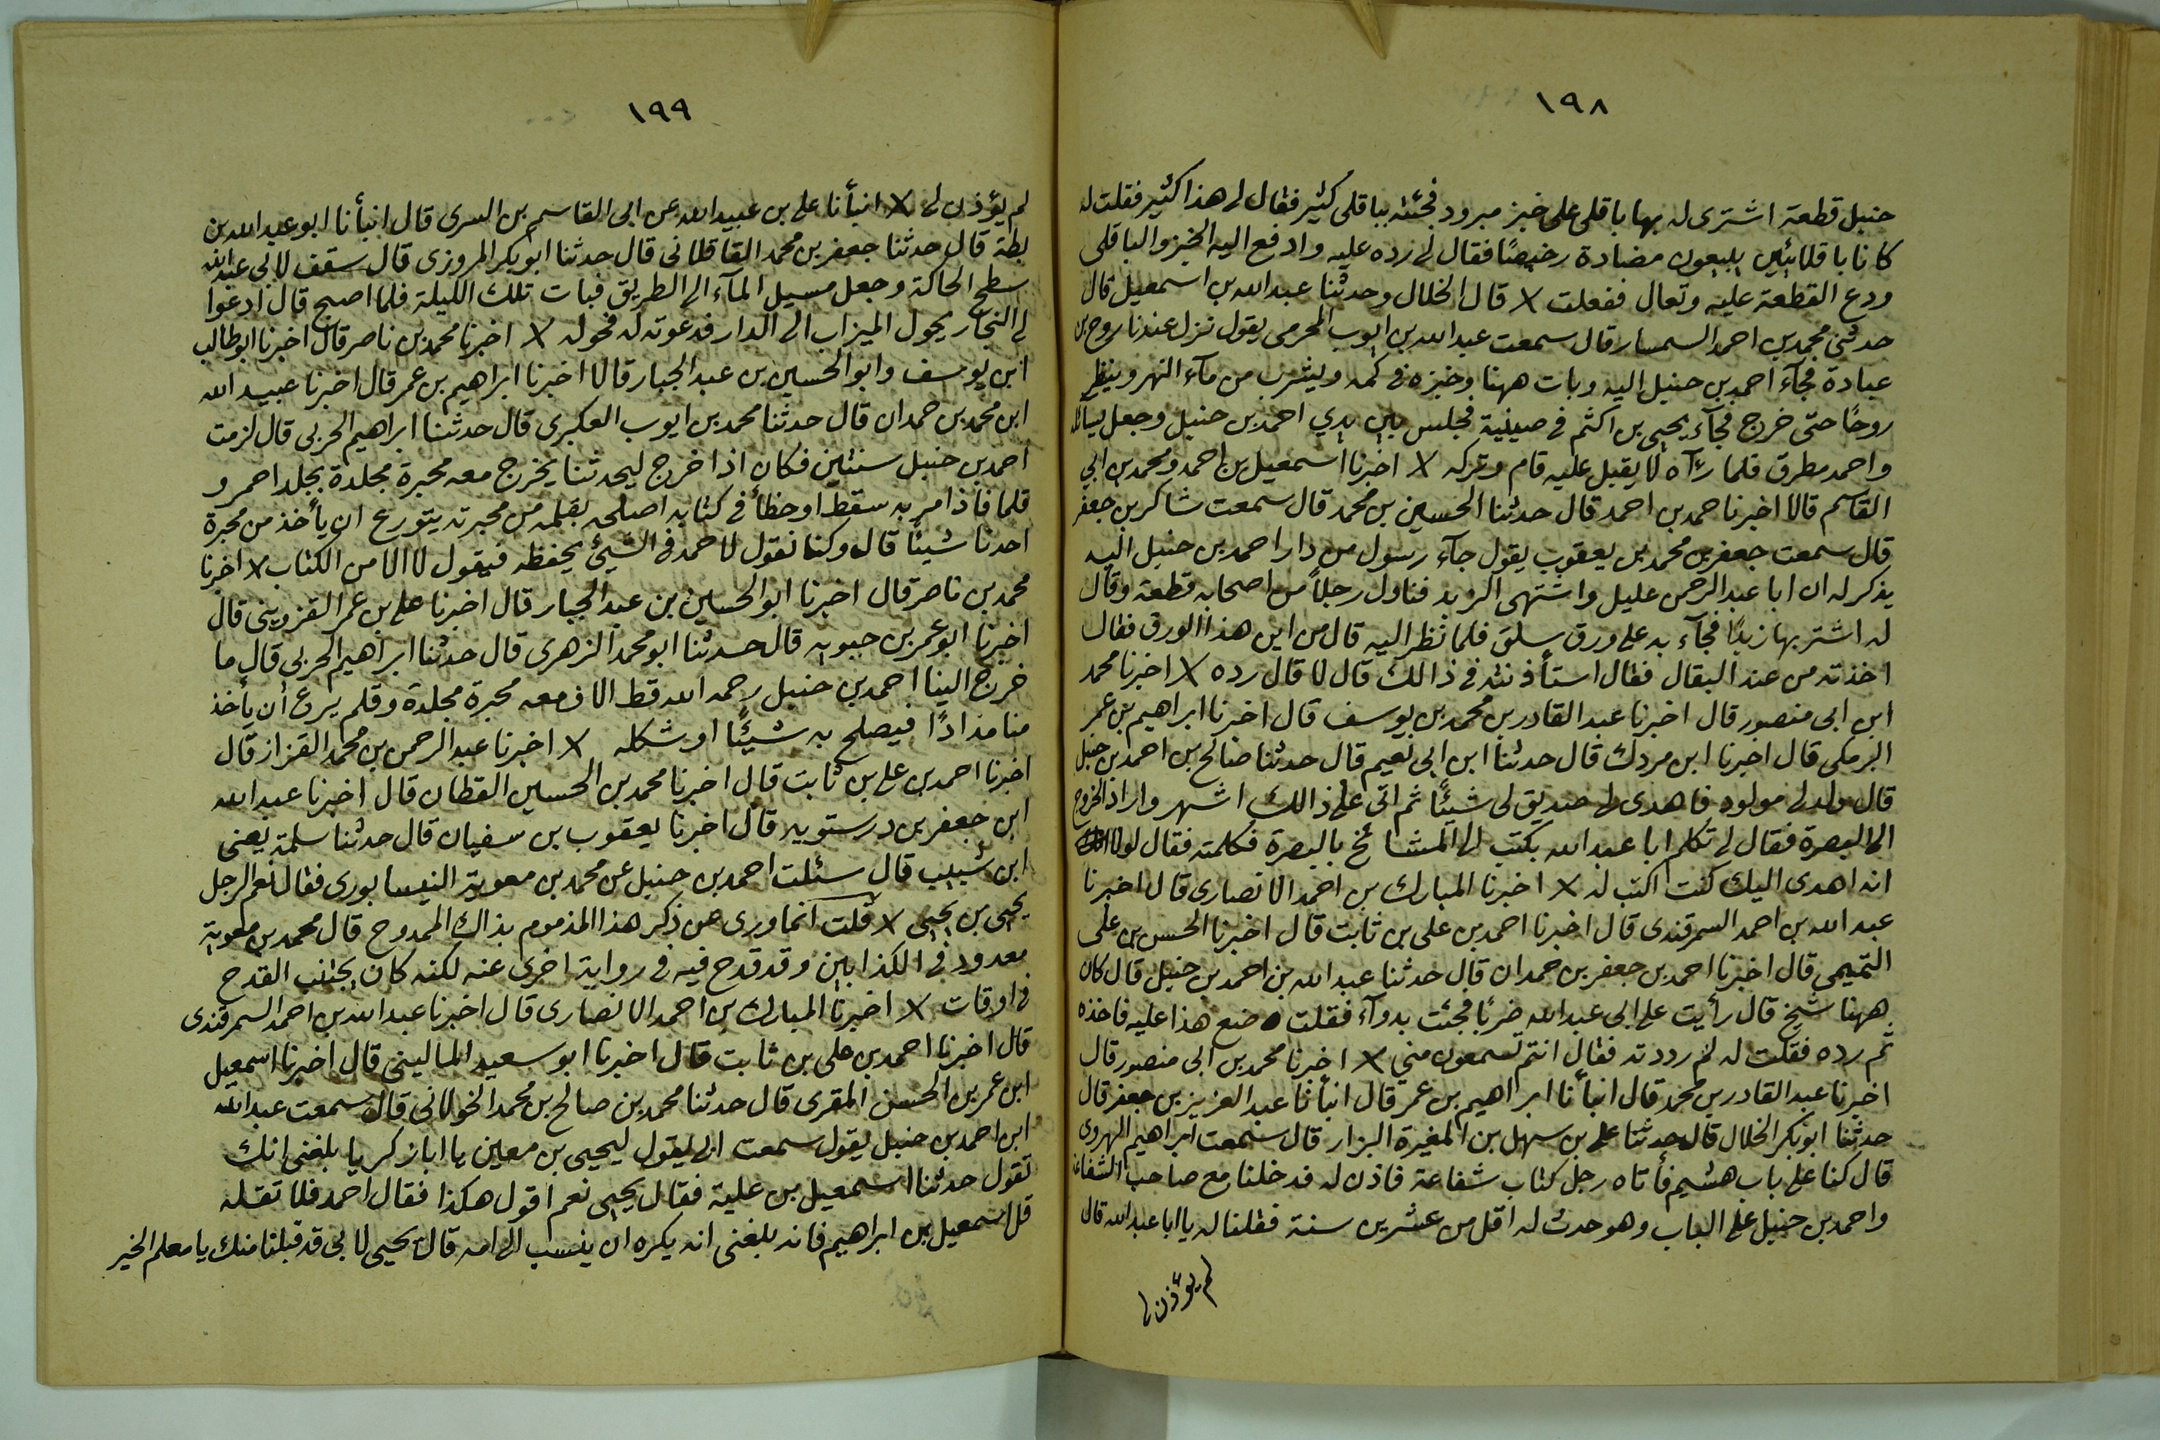 ١٩٨
حنبل قطعة اشترى له بها باقلى على خبز مبرود فجئته بباقلى كثير فقال لي هذا كثير فقلت له
كانا باقلائيين يبيعون مضادة رخيصًا فقال لي رده عليه وادفع اليه الخبز والباقلى
ودع القطعة عليه وتعال ففعلت × قال الخلال وحدثنا عبد الله بن اسمعيل قال
حدثني محمد بن احمد السمسار قال سمعت عبد الله بن ايوب المخرمي يقول نزل عندنا روح بن
عبادة فجآء احمد بن حنبل اليه وبات ههنا وخبزه في كمه ويشرب من مآء النهر وينظر
روحًا حتى خرج فجآء يحيى بن اكثم في صينية فجلس بين يدي احمد بن حنبل وجعل يسائله
واحمد مطرق فلما رآه لا يقبل عليه قام وتركه × اخبرنا اسمعيل بن احمد ومحمد بن ابي
القاسم قالا اخبرنا حمد بن احمد قال حدثنا الحسين بن محمد قال سمعت شاكر بن جعفر
قال سمعت جعفر بن محمد بن يعقوب يقول جآء رسول من دار احمد بن حنبل اليه
يذكر له ان ابا عبد الرحمن عليل واشتهى الزبد فناول رجلاً من اصحابه قطعة وقال
له اشتر بها زبدًا فجآء به على ورق سلق فلما نظر اليه قال من اين هذا الورق فقال
اخذته من عند البقال فقال استأذنته في ذالك قال لا قال رده × اخبرنا محمد
ابن ابى منصور قال اخبرنا عبد القادر بن محمد بن يوسف قال اخبرنا ابراهيم بن عمر
البرمكى قال اخبرنا ابن مردك قال حدثنا ابن ابى نعيم قال حدثنا صالح بن احمد بن حنبل
قال ولد لي مولود فاهدى لي صديق لى شيئًا ثم اتى على ذالك اشهر واراد الخروج
الى البصرة فقال لي تكلم ابا عبد الله يكتب لي الى المشائخ بالبصرة فكلمته فقال لولا
انه اهدى اليك كنت اكتب له × اخبرنا المبارك بن احمد الانصارى قال اخبرنا
عبد الله بن احمد السمرقندى قال اخبرنا احمد بن على بن ثابت قال اخبرنا الحسن بن على
التميمى قال اخبرنا احمد بن جعفر بن حمدان قال حدثنا عبد الله بن احمد بن حنبل قال كان
ههنا شيخ قال رأيت على ابى عبد الله ضربًا فجئت بدوآء فقلت ضع هذا عليه فاخذه
ثم رده فقلت له لم رددته فقال انتم تسمعون منى × اخبرنا محمد بن ابى منصور قال
اخبرنا عبد القادر بن محمد قال انبأنا ابراهيم بن عمر قال انبأنا عبد العزيز بن جعفر قال
حدثنا ابو بكر الخلال قال حدثنا على بن سهل بن المغيرة البزار قال سمعت ابراهيم الهروى
قال كنا على باب هشيم فأتاه رجل كتاب شفاعة فاذن له فدخلنا مع صاحب الشفاعة
واحمد بن حنبل على الباب وهو حدث له اقل من عشرين سنة فقلنا له يا ابا عبد الله قال
لم يؤذن لي
١٩٩
لم يؤذن لي × انبأنا على بن عبيد الله عن ابى القاسم بن السرى قال انبأنا ابو عبد الله بن
بطة قال حدثنا جعفر بن محمد القافلانى قال حدثنا ابو بكر المروزى قال سقف لابى عبد الله
سطح الحاكة وجعل مسيل المآء الى الطريق فبات تلك الليلة فلما اصبح قال ادعوا
لي النجار يحول الميزاب الى الدار فدعوته له فحوله × اخبرنا محمد بن ناصر قال اخبرنا ابو طالب
ابن يوسف وابو الحسين بن عبد الجبار قالا اخبرنا ابراهيم بن عمر قال اخبرنا عبيد الله
ابن محمد بن حمدان قال حدثنا محمد بن ايوب العكبرى قال حدثنا ابراهيم الحربى قال لزمت
احمد بن حنبل سنتين فكان اذا خرج ليحدثنا يخرج معه محبرة مجلدة بجلد احمر و
قلما فاذا مر به سقط او خطأ فى كتابه اصلحه بقلمه من محبرته يتورع ان يأخذ من محبرة
احدنا شيئًا قال وكنا نقول لاحمد فى الشيئ يحفظه فيقول لا الا من الكتاب × اخبرنا
محمد بن ناصر قال اخبرنا ابو الحسين بن عبد الجبار قال اخبرنا على بن عمر القزوينى قال
اخبرنا ابو عمر بن حيويه قال حدثنا ابو محمد الزهرى قال حدثنا ابراهيم الحربى قال ما
خرج الينا احمد بن حنبل رحمه الله قط الا ومعه محبرة مجلدة وقلم يرع أن يأخذ
منا مدادًا فيصلح به شيئًا او شكله × اخبرنا عبد الرحمن بن محمد القزاز قال
اخبرنا احمد بن على بن ثابت قال اخبرنا محمد بن الحسين القطان قال اخبرنا عبد الله
ابن جعفر بن درستويه قال اخبرنا يعقوب بن سفيان قال حدثنا سلمة يعنى
ابن شبيب قال سئلت احمد بن حنبل عن محمد بن معوية النيسابورى فقال نعم الرجل
يحيى بن يحيى × قلت انما ورى عن ذكر هذا المذموم بذاك الممدوح قال محمد بن معوية
معدود فى الكذابين وقد قدح فيه فى رواية اخرى عنه لكنه كان يجتنب القدح
فى اوقات × اخبرنا المبارك بن احمد الانصارى قال اخبرنا عبد الله بن احمد السمرقندى
قال اخبرنا احمد بن على بن ثابت قال اخبرنا ابو سعيد المالينى قال اخبرنا اسمعيل
ابن عمر بن الحسن المقرى قال حدثنا محمد بن صالح بن محمد الخولانى قال سمعت عبد الله
ابن احمد بن حنبل يقول سمعت ابى يقول ليحيى بن معين يا ابا زكريا بلغنى انك
تقول حدثنا اسمعيل بن علية فقال يحيى نعم اقول هكذا فقال احمد فلا تقله
قل اسمعيل بن ابراهيم فانه بلغنى انه يكره ان ينسب الى امه قال يحيى لابى قد قبلنا منك يا معلم الخير